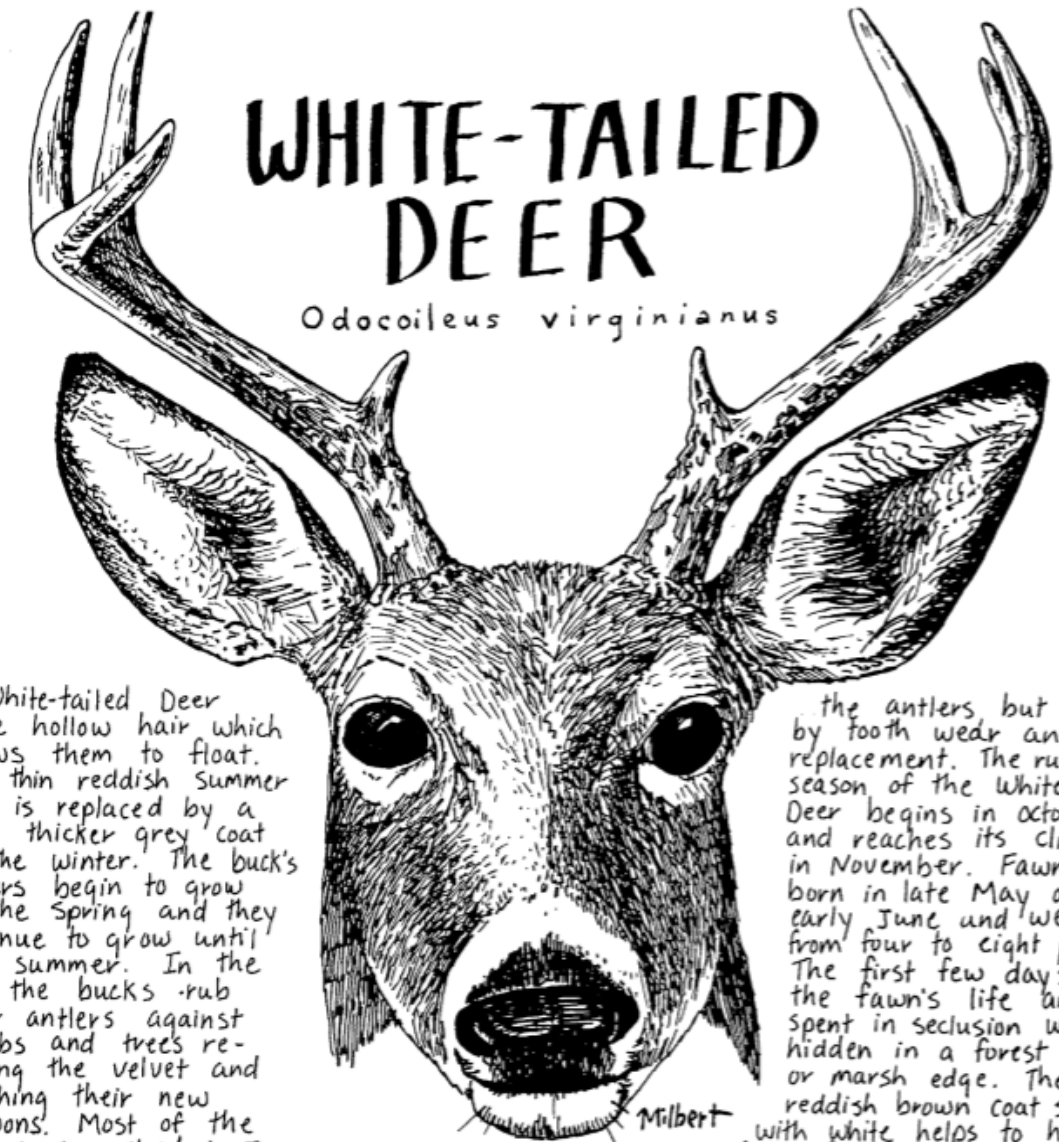 WHITE-TAILED
DEER
Odocoileus virginianus
White-tailed Deer
hollow hair which
them to float.
thin reddish summer
is replaced by a
thicker grey coat
the winter. The buck's
begin to grow
the Spring and they
to grow until
summer. In the
the bucks rub
antlers against
and trees re-
the velvet and
their new
Most of the
the antlers but
by tooth wear an
replacement. The ru
season of the White
Deer begins in Octo
and reaches its cli
in November. Fawn
born in late May a
early June und w
from four to eight
The first few day
the fawn's life a
spent in seclusion w
hidden in a forest
or marsh edge. The
reddish brown coat s
with white helps to h
Milbert